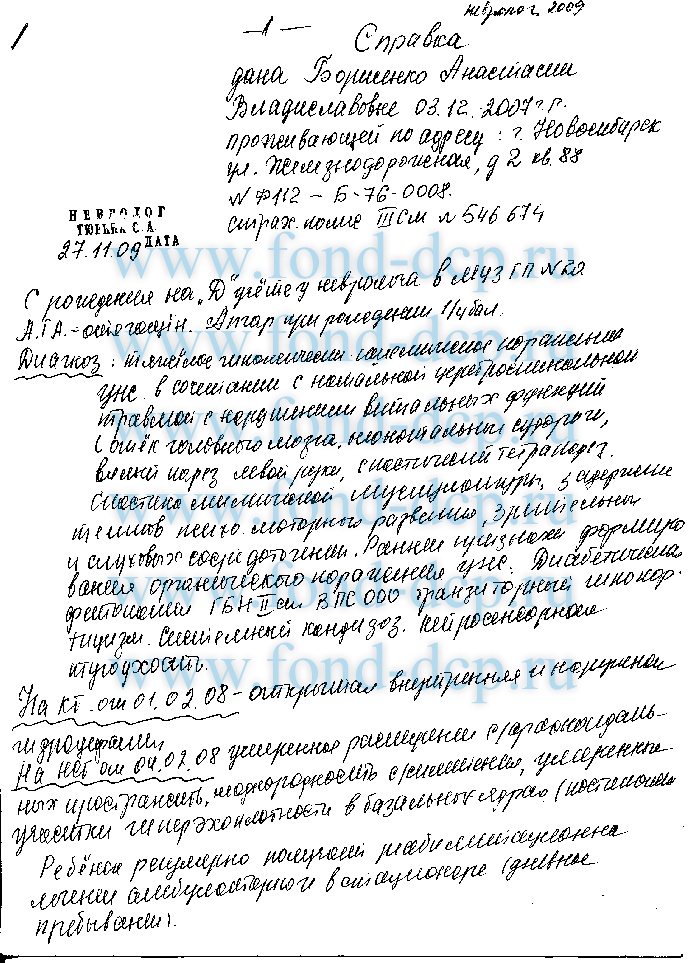 невролог 2009
— 1 —
Справка
дана Борисенко Анастасии
Владиславовне 03.12.2007 г.р.
проживающей по адресу: г. Новосибирск
ул. Железнодорожная, д 2 кв. 88
N Ф112 – Б-76-0008.
страх. полис IIIСМ N 546 674
НЕВРОЛОГ
С. А.
27.11.09 ДАТА
www.fond-dcp.ru
С рождения на „Д" учёте у невролога в МУЗ ГП N 29
Апгар при рождении 1/4 бал.
Диагноз: тяжёлое поражение
ЦНС в сочетании с натальной цереброспинальной
травмой с нарушением витальных функций
отёк головного мозга, неонатальные судороги,
вялый парез левой руки, спастический тетрапарез.
Спастика мускулатуры, задержка
психо моторного развития, зрительных
и слуховых сосредоточений. Ранние признаки формиро
вания органического поражения ЦНС. Диабетическая
фетопатия ГБН II ст ВПС ООО транзиторный гипокор
тицизм. Системный кандидоз. Нейросенсорная
тугоухость.
На КТ от 01.02.08 – открытая внутренняя и наружная
гидроцефалия,
На НСГ от 04.02.08 умеренное расширение с/арахноидаль-
ных пространств, неоднородность умеренные
участки гиперэхоплотности в базальных ядрах
Ребёнок регулярно получает реабилитационное
лечение амбулаторно и в стационаре (дневное
пребывание).